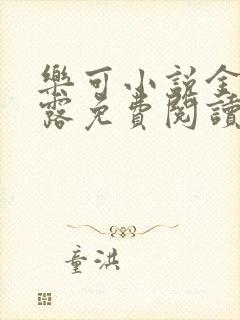 樂可小説全
露免費閱讀
童洪